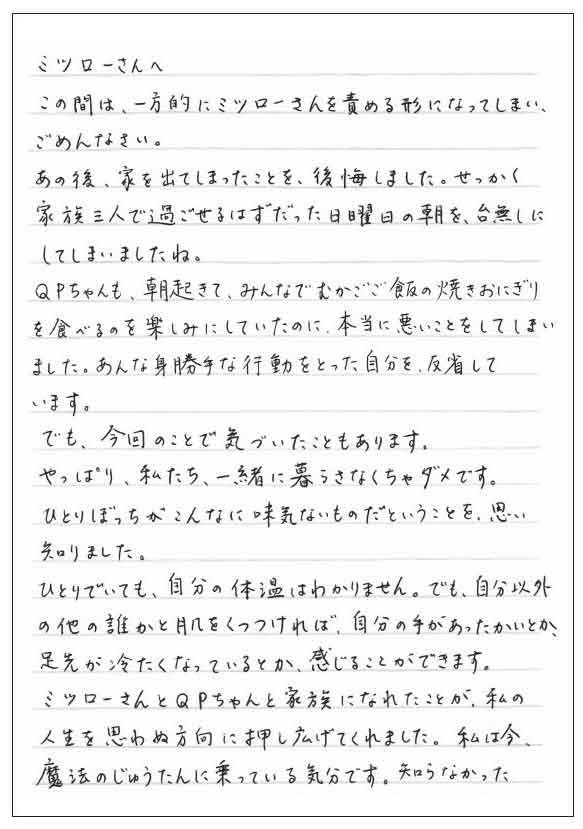 ミツローさんへ
この間は、一方的にミツローさんを責める形になってしまい、
ごめんなさい。
あの後、家を出てしまったことを、後悔しました。せっかく
家族三人で過ごせるはずだった日曜日の朝を、台無しに
してしまいましたね。
QPちゃんも、朝起きて、みんなでむかごご飯の焼きおにぎり
を食べるのを楽しみにしていたのに、本当に悪いことをしてしまい
ました。あんな身勝手な行動をとった自分を、反省して
います。
でも、今回のことで気づいたこともあります。
やっぱり、私たち、一緒に暮らさなくちゃダメです。
ひとりぼっちがこんなに味気ないものだということを、思い
知りました。
ひとりでいても、自分の体温はわかりません。でも、自分以外
の他の誰かと肌をくっつければ、自分の手があったかいとか、
足先が冷たくなっているとか、感じることができます。
ミツローさんとQPちゃんと家族になれたことが、私の
人生を思わぬ方向に押し広げてくれました。私は今、
魔法のじゅうたんに乗っている気分です。知らなかった